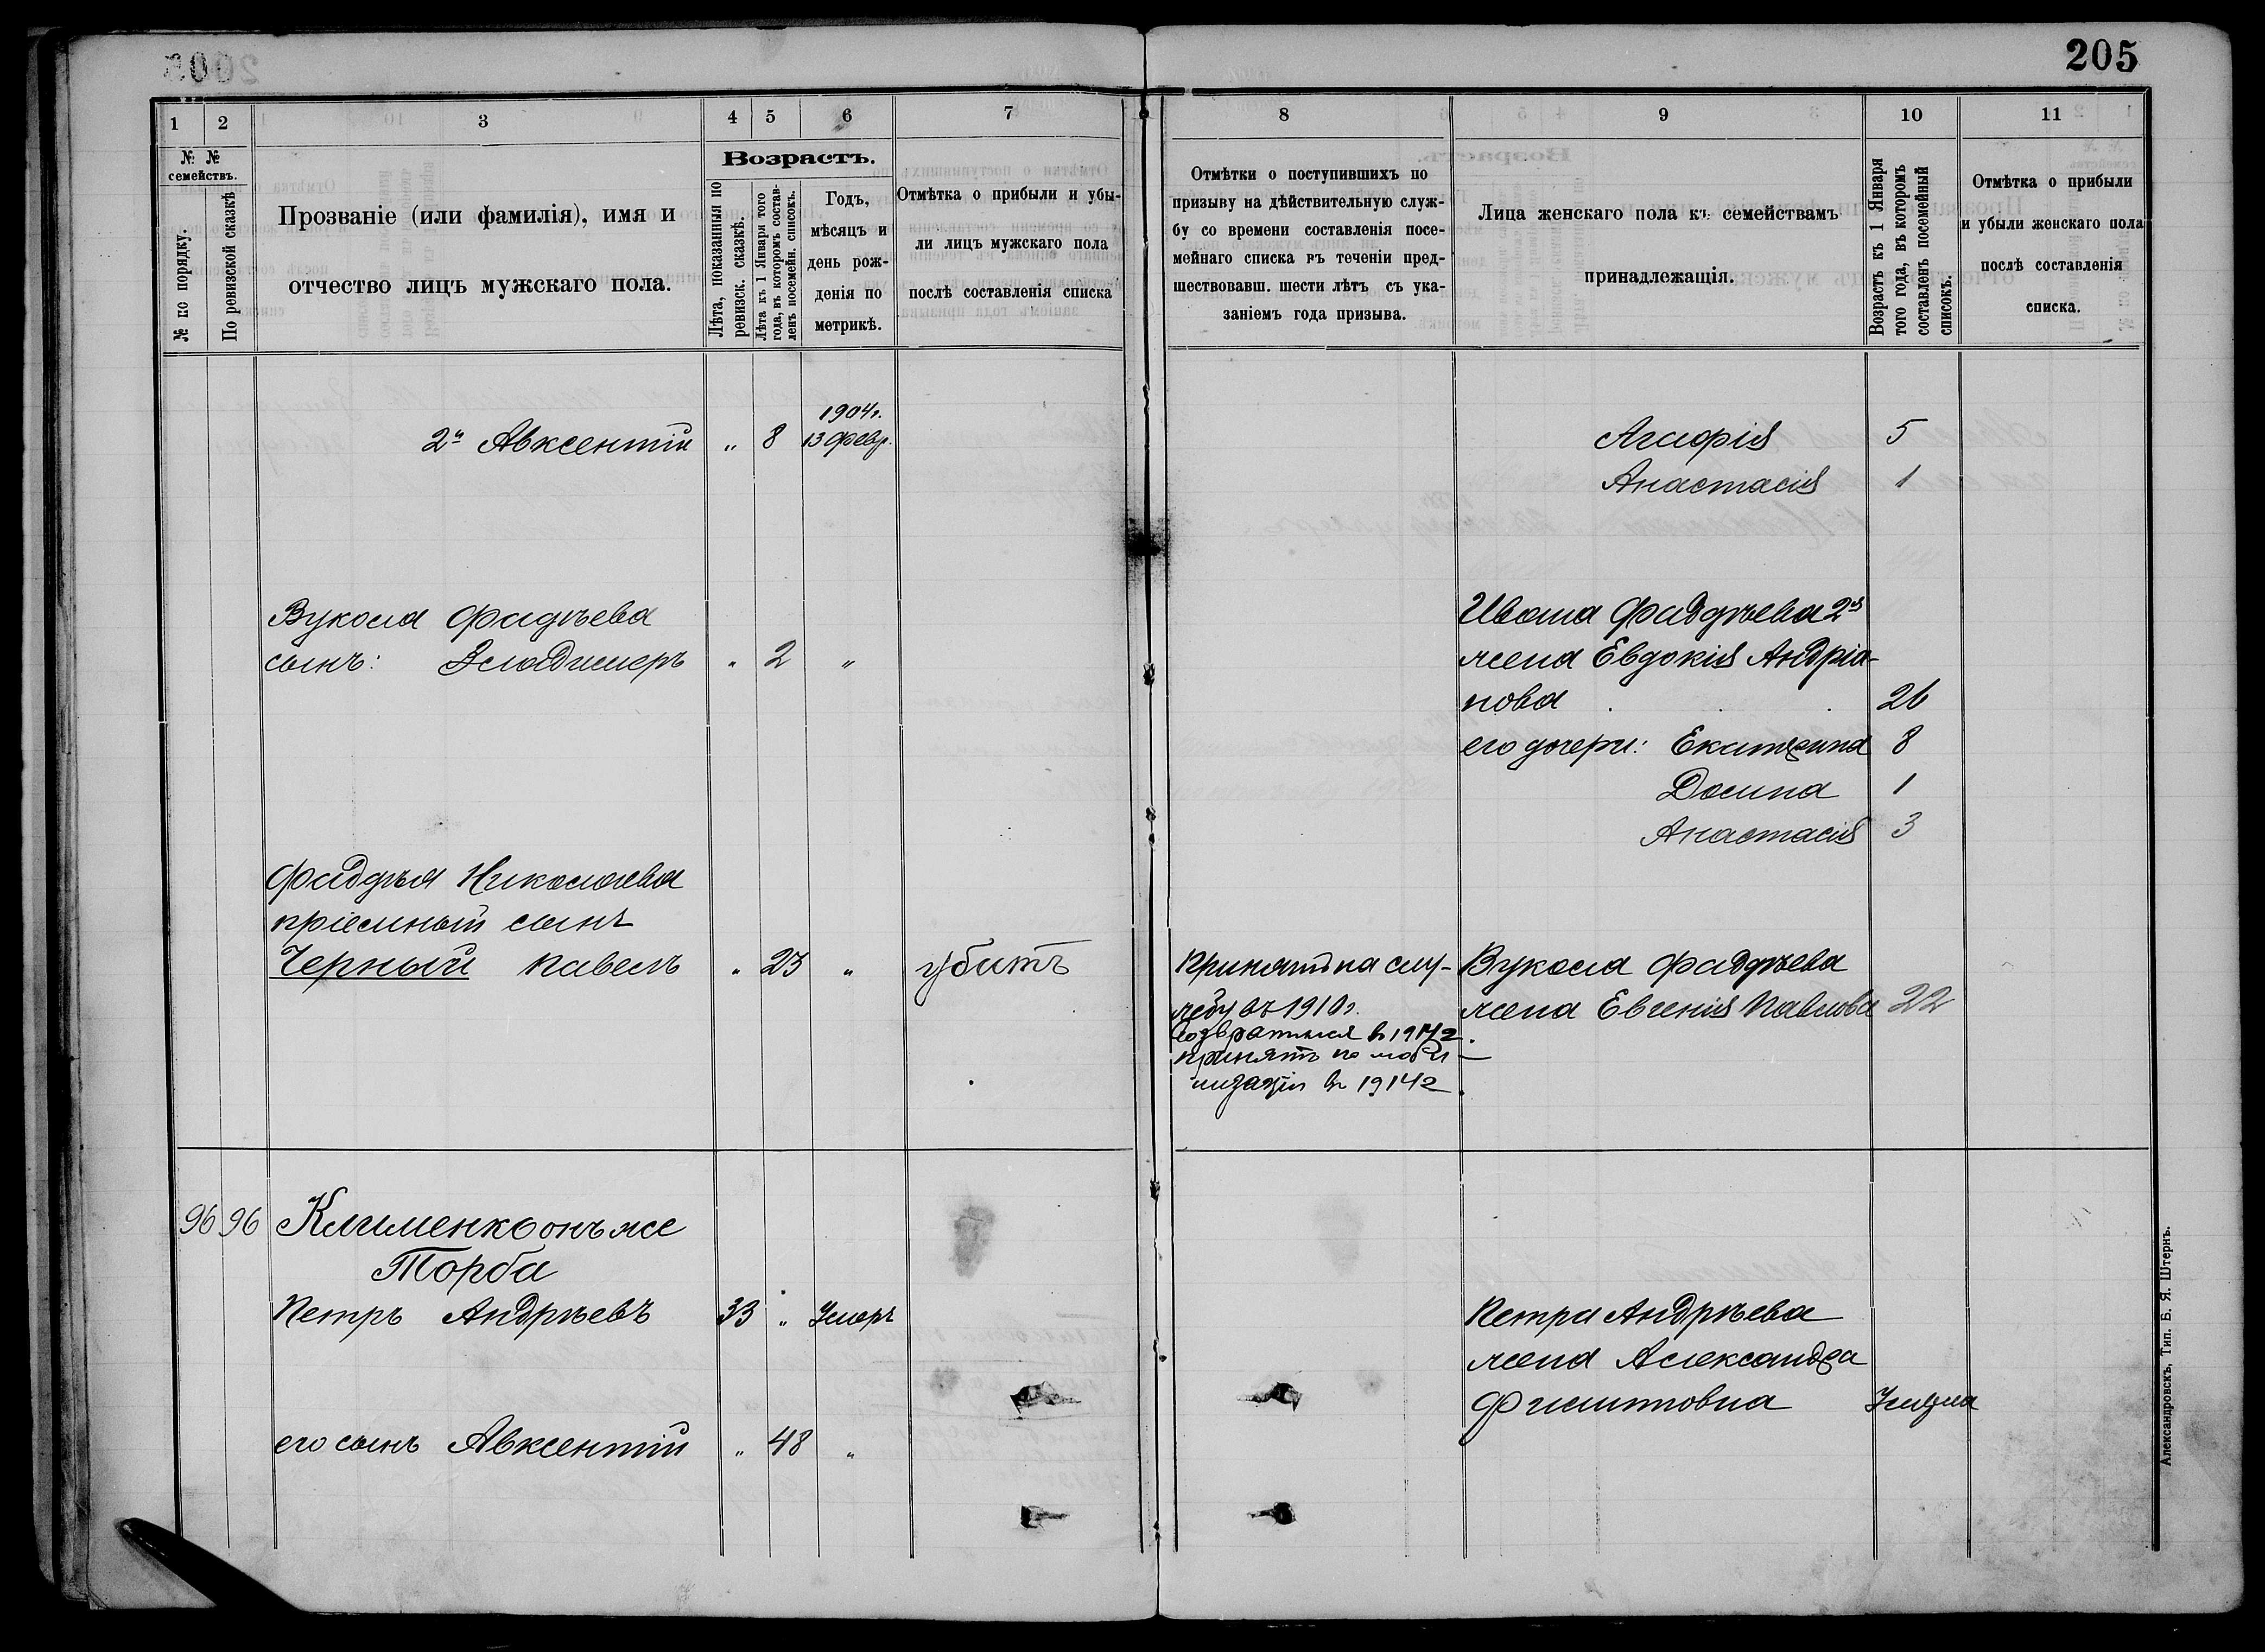 205
1
2
3
4
5
6
7
8
9
10
11
№ №
семействъ.
№ по порядку.
По ревизской сказкѣ
Прозваніе (или фамилія), имя и
отчество лицъ мужскаго пола.
Возрастъ.
Лѣта, показанныя по
ревизск. сказкѣ.
Лѣта къ 1 Января того
года, въ которомъ состав-
ленъ посемейн. списокъ.
Годъ,
мѣсяцъ и
день рож-
денія по
метрикѣ.
Отмѣтка о прибыли и убы-
ли лицъ мужскаго пола
послѣ составленія списка
Отмѣтки о поступившихъ по
призыву на дѣйствительную служ-
бу со времени составленія посе-
мейнаго списка въ теченіи пред-
шествовавш. шести лѣтъ съ ука-
заніемъ года призыва.
Лица женскаго пола къ семействамъ
принадлежащія.
Возрастъ къ 1 Января
того года, въ которомъ
составленъ посемейный
списокъ.
Отмѣтка о прибыли
и убыли женскаго пола
послѣ составленія
списка.
1904г.
2й Авксентій " 8 13 февр.
Агафія 5
Анастасія 1
Вукола Фадѣева
сынъ: Владимеръ " 2 "
Ивана Фаддѣева 2я
жена Евдокія Андріа-
нова 26
его дочери: Екатерина 8
Домна 1
Анастасія 3
Фаддѣя Николаева
пріемный сынъ
Черный Павелъ " 23 " убитъ
Принятъ на слу-
жбу въ 1910г.
возвратился в 1912г.
принятъ по моби-
лизаціи в 1914 г.
Вукола Фаддѣева
жена Евгенія Павлова 22
96 96 Клименко онъ же
Торба
Петръ Андрѣевъ 33 " Умеръ
его сынъ Авксентій " 48 "
Петра Андрѣева
жена Александра
Филиповна Умерла
Александровскъ, Тип. Б. Я. Штернъ.